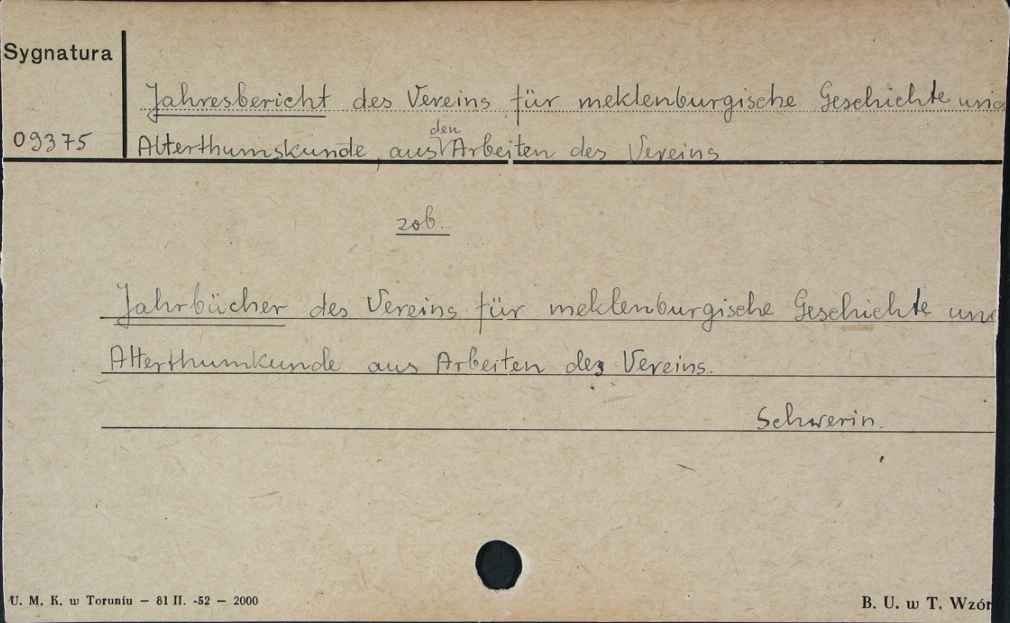 Sygnatura
Jahresbericht des Vereins für meklenburgische Geschichte und
09375
den
Alterthumskunde, aus Arbeiten des Vereins
zob.
Jahrbücher des Vereins für meklenburgische Geschichte und
Alterthumkunde aus Arbeiten des Vereins.
Schwerin.
U. M. K. w Toruniu – 81 II. -52 – 2000
B. U. w T. Wzór